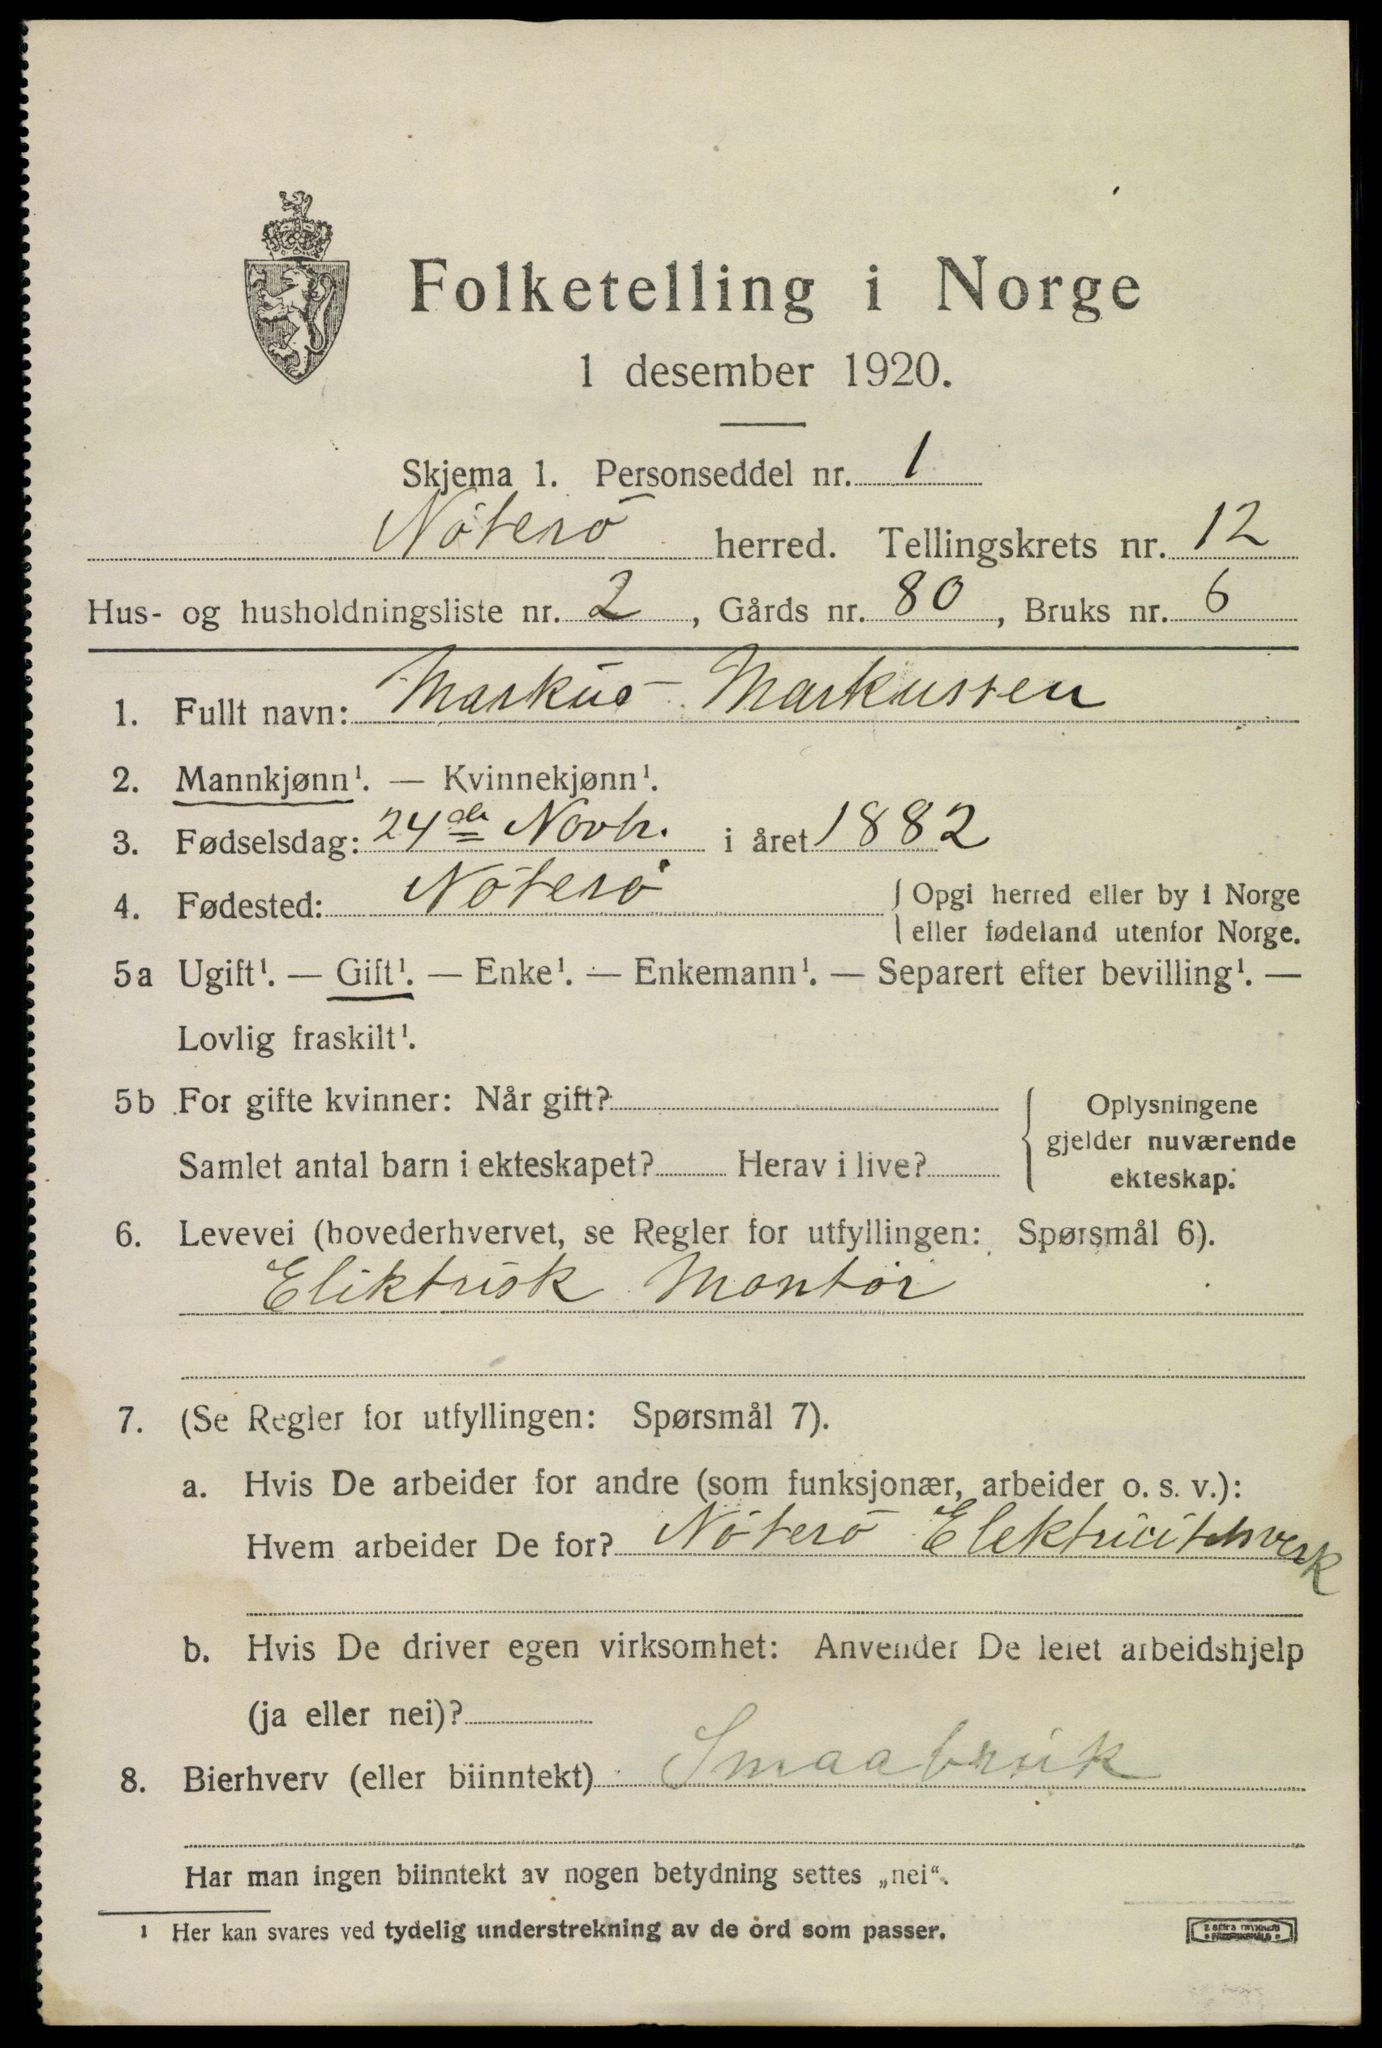 Folketelling i Norge
1 desember 1920.
Skjema 1. Personseddel nr. 1
Nöterö herred. Tellingskrets nr. 12
Hus- og husholdningsliste nr. 2, Gårds nr. 80, Bruks nr. 6
1. Fullt navn: Markus Markussen
2. Mannkjønn¹. — Kvinnekjønn¹.
3. Fødselsdag: 24de Novbr. i året 1882
4. Fødested: Nöterö { Opgi herred eller by i Norge
eller fødeland utenfor Norge.
5a Ugift¹. — Gift¹. — Enke¹. — Enkemann¹. — Separert efter bevilling¹. —
Lovlig fraskilt¹.
5b For gifte kvinner: Når gift? { Oplysningene
gjelder nuværende
Samlet antal barn i ekteskapet? Herav i live? ekteskap.
6. Levevei (hovederhvervet, se Regler for utfyllingen: Spørsmål 6).
Eliktrisk Montör
7. (Se Regler for utfyllingen: Spørsmål 7).
a. Hvis De arbeider for andre (som funksjonær, arbeider o. s. v.):
Hvem arbeider De for? Nöterö Elektricitetsverk
b. Hvis De driver egen virksomhet: Anvender De leiet arbeidshjelp
(ja eller nei)?
8. Bierhverv (eller biinntekt) Smaabruk
Har man ingen biinntekt av nogen betydning settes „nei“.
¹ Her kan svares ved tydelig understrekning av de ord som passer.